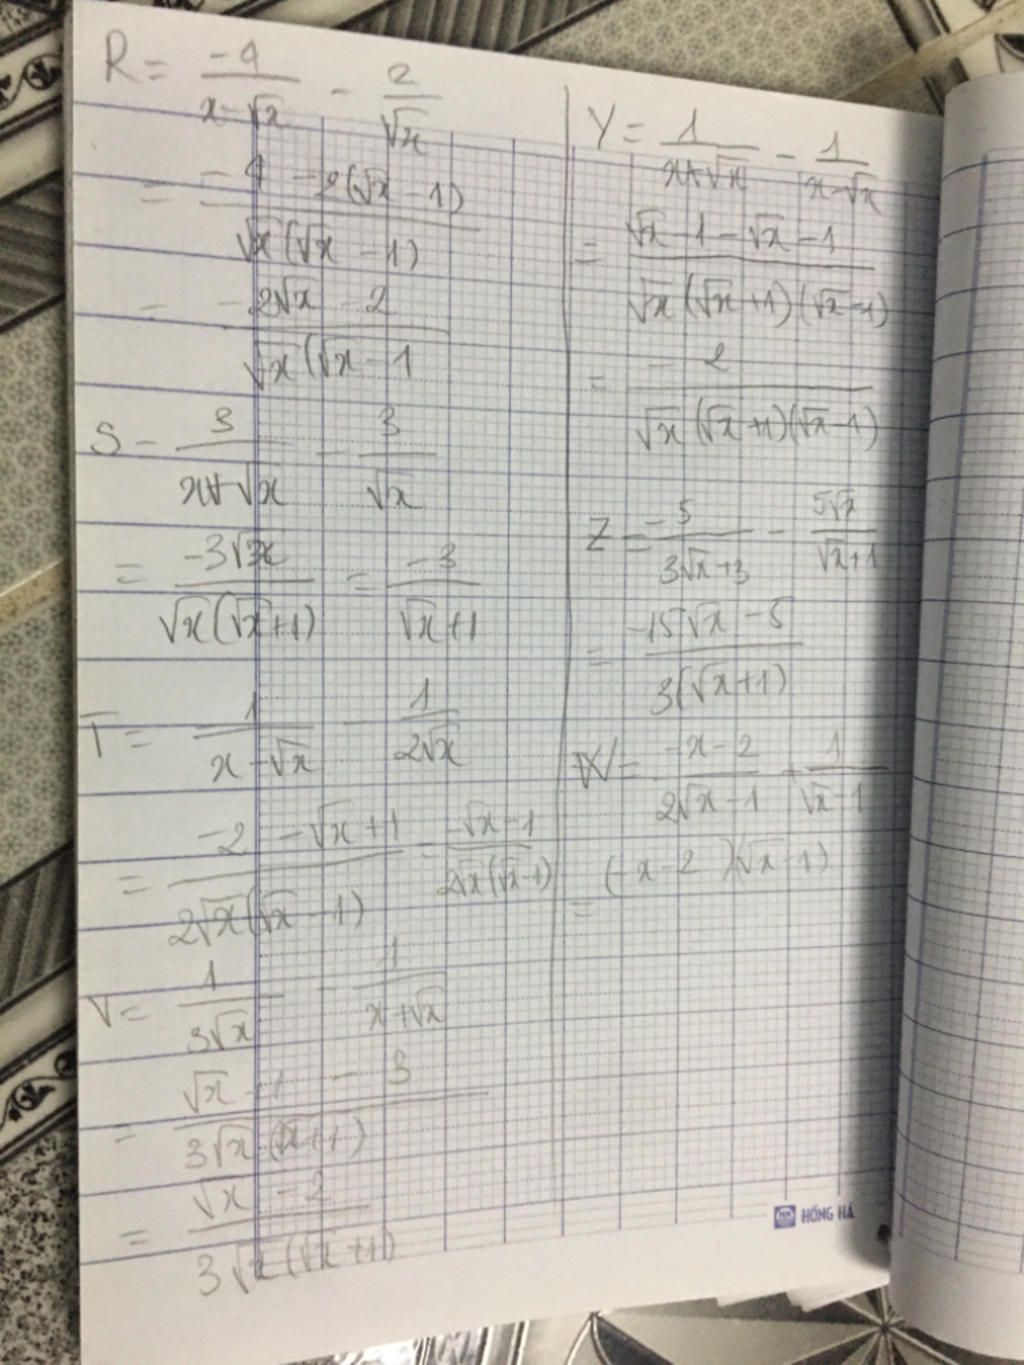 R = -4/(x-√x) - 2/√x
= (-4 - 2(√x - 1))/(√x(√x - 1))
= (-2√x - 2)/(√x(√x - 1
S = 3/(x+√x) - 3/√x
= -3√x/(√x(√x+1)) = -3/(√x+1)
T = 1/(x-√x) - 1/(2√x)
= (-2 - √x+1)/(2√x(√x-1)) - (√x-1)/(2√x(√x-1))
V = 1/(3√x) - 1/(x+√x)
= (√x+1 - 3)/(3√x(√x+1))
= (√x - 2)/(3√x(√x+1))
Y = 1/(x+√x) - 1/(x-√x)
= (√x-1-√x-1)/(√x(√x+1)(√x-1))
= -2/(√x(√x+1)(√x-1))
Z = -5/(3√x+3) - 5√x/(√x+1)
= (-15√x - 5)/(3(√x+1))
W = (-x-2)/(2√x-1) + 1/(√x-1)
= (-x-2)(√x-1)
HỒNG HÀ